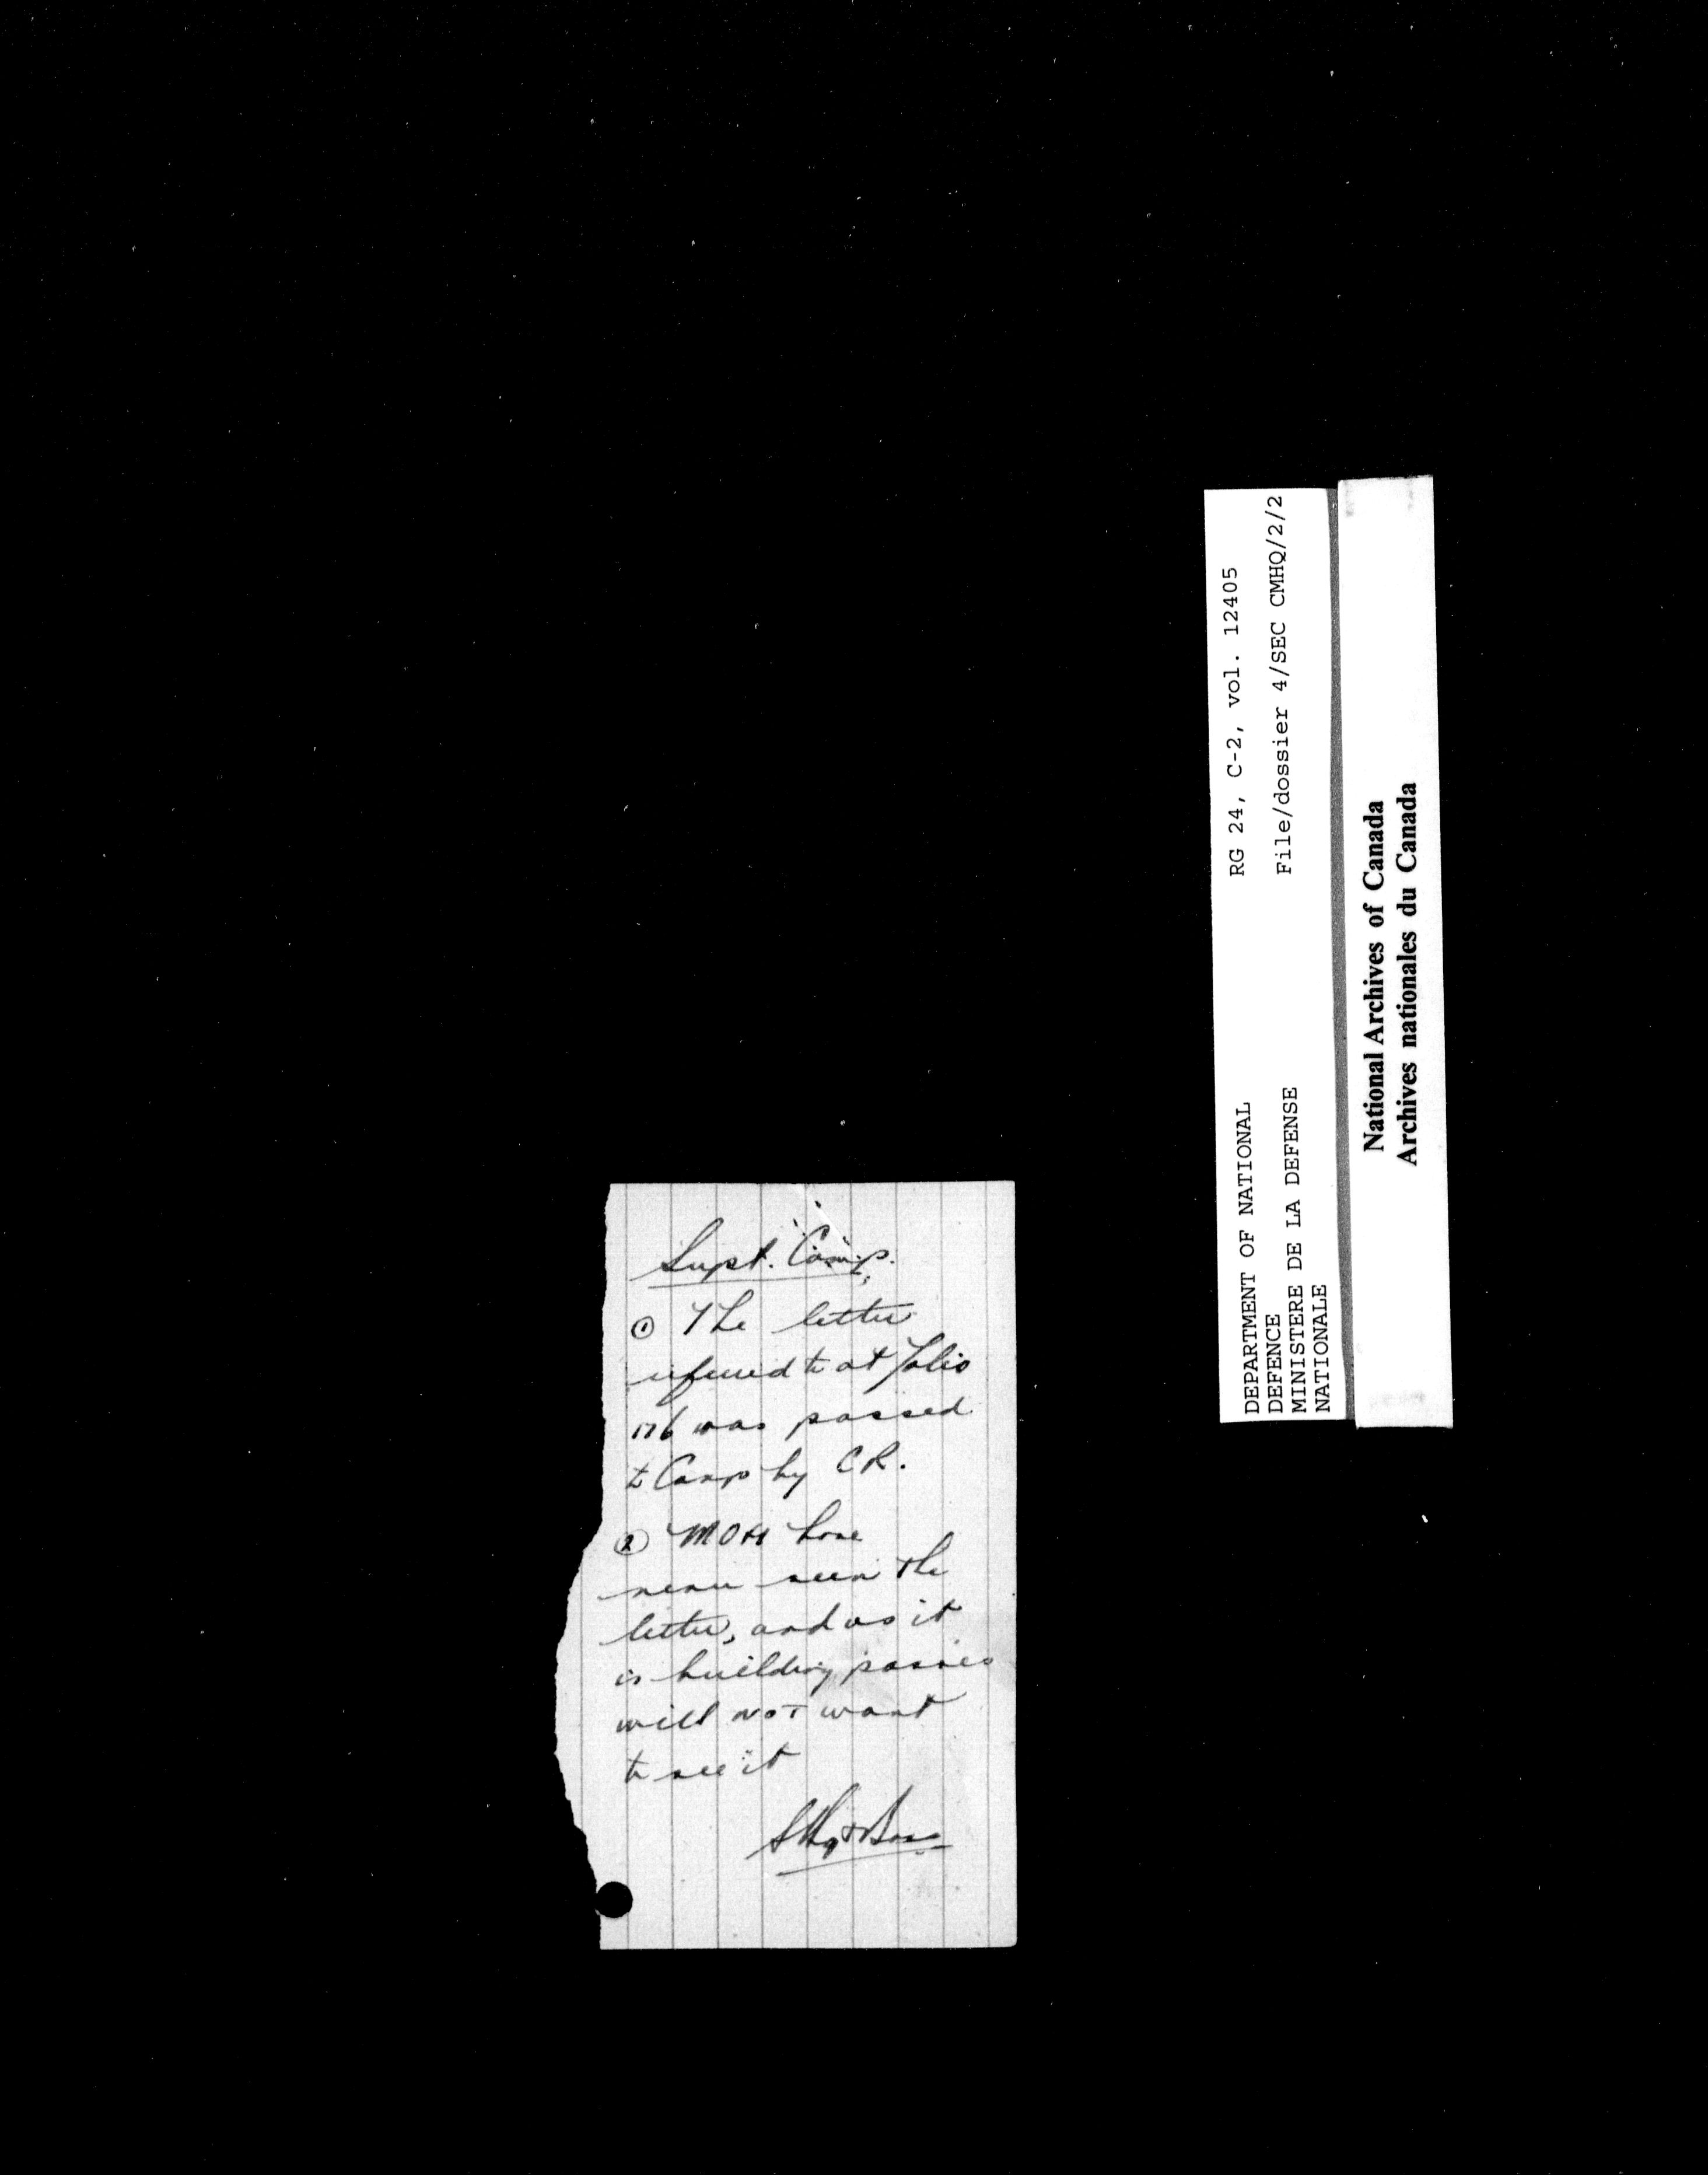 Supt. "Camp".
① The letter
referred to at folio
176 was passed
to Camp by CR.
② MOH have
never seen the
letter, and as it
is building passes
will NOT want
to see it
DEPARTMENT OF NATIONAL
DEFENCE
MINISTERE DE LA DEFENSE
NATIONALE
RG 24, C-2, vol. 12405
File/dossier 4/SEC CMHQ/2/2
National Archives of Canada
Archives nationales du Canada